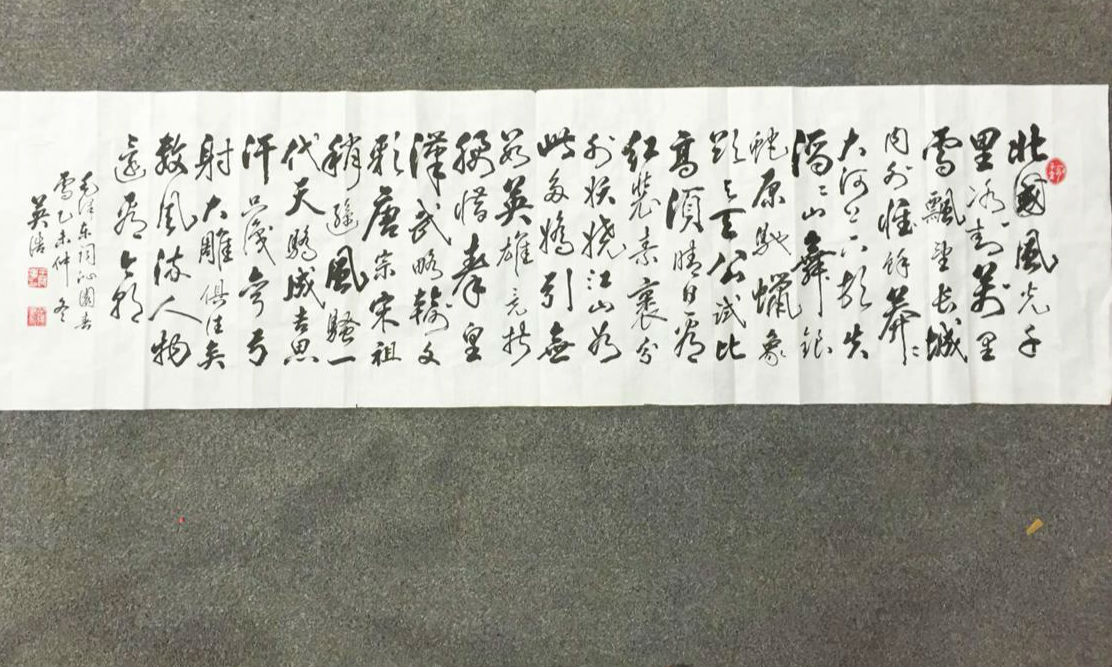 北國風光千
里冰封萬里
雪飄望長城
內外惟餘莽々
大河上下頓失
滔々山舞銀
蛇原馳蠟象
欲与天公試比
高須晴日看
紅裝素裹分
外妖嬈江山如
此多嬌引無
數英雄競折
腰惜秦皇
漢武略輸文
彩唐宗宋祖
稍遜風騷一
代天驕成吉思
汗只識彎弓
射大雕俱往矣
數風流人物
還看今朝
毛澤東詞沁園春
雪乙未仲冬
英浩